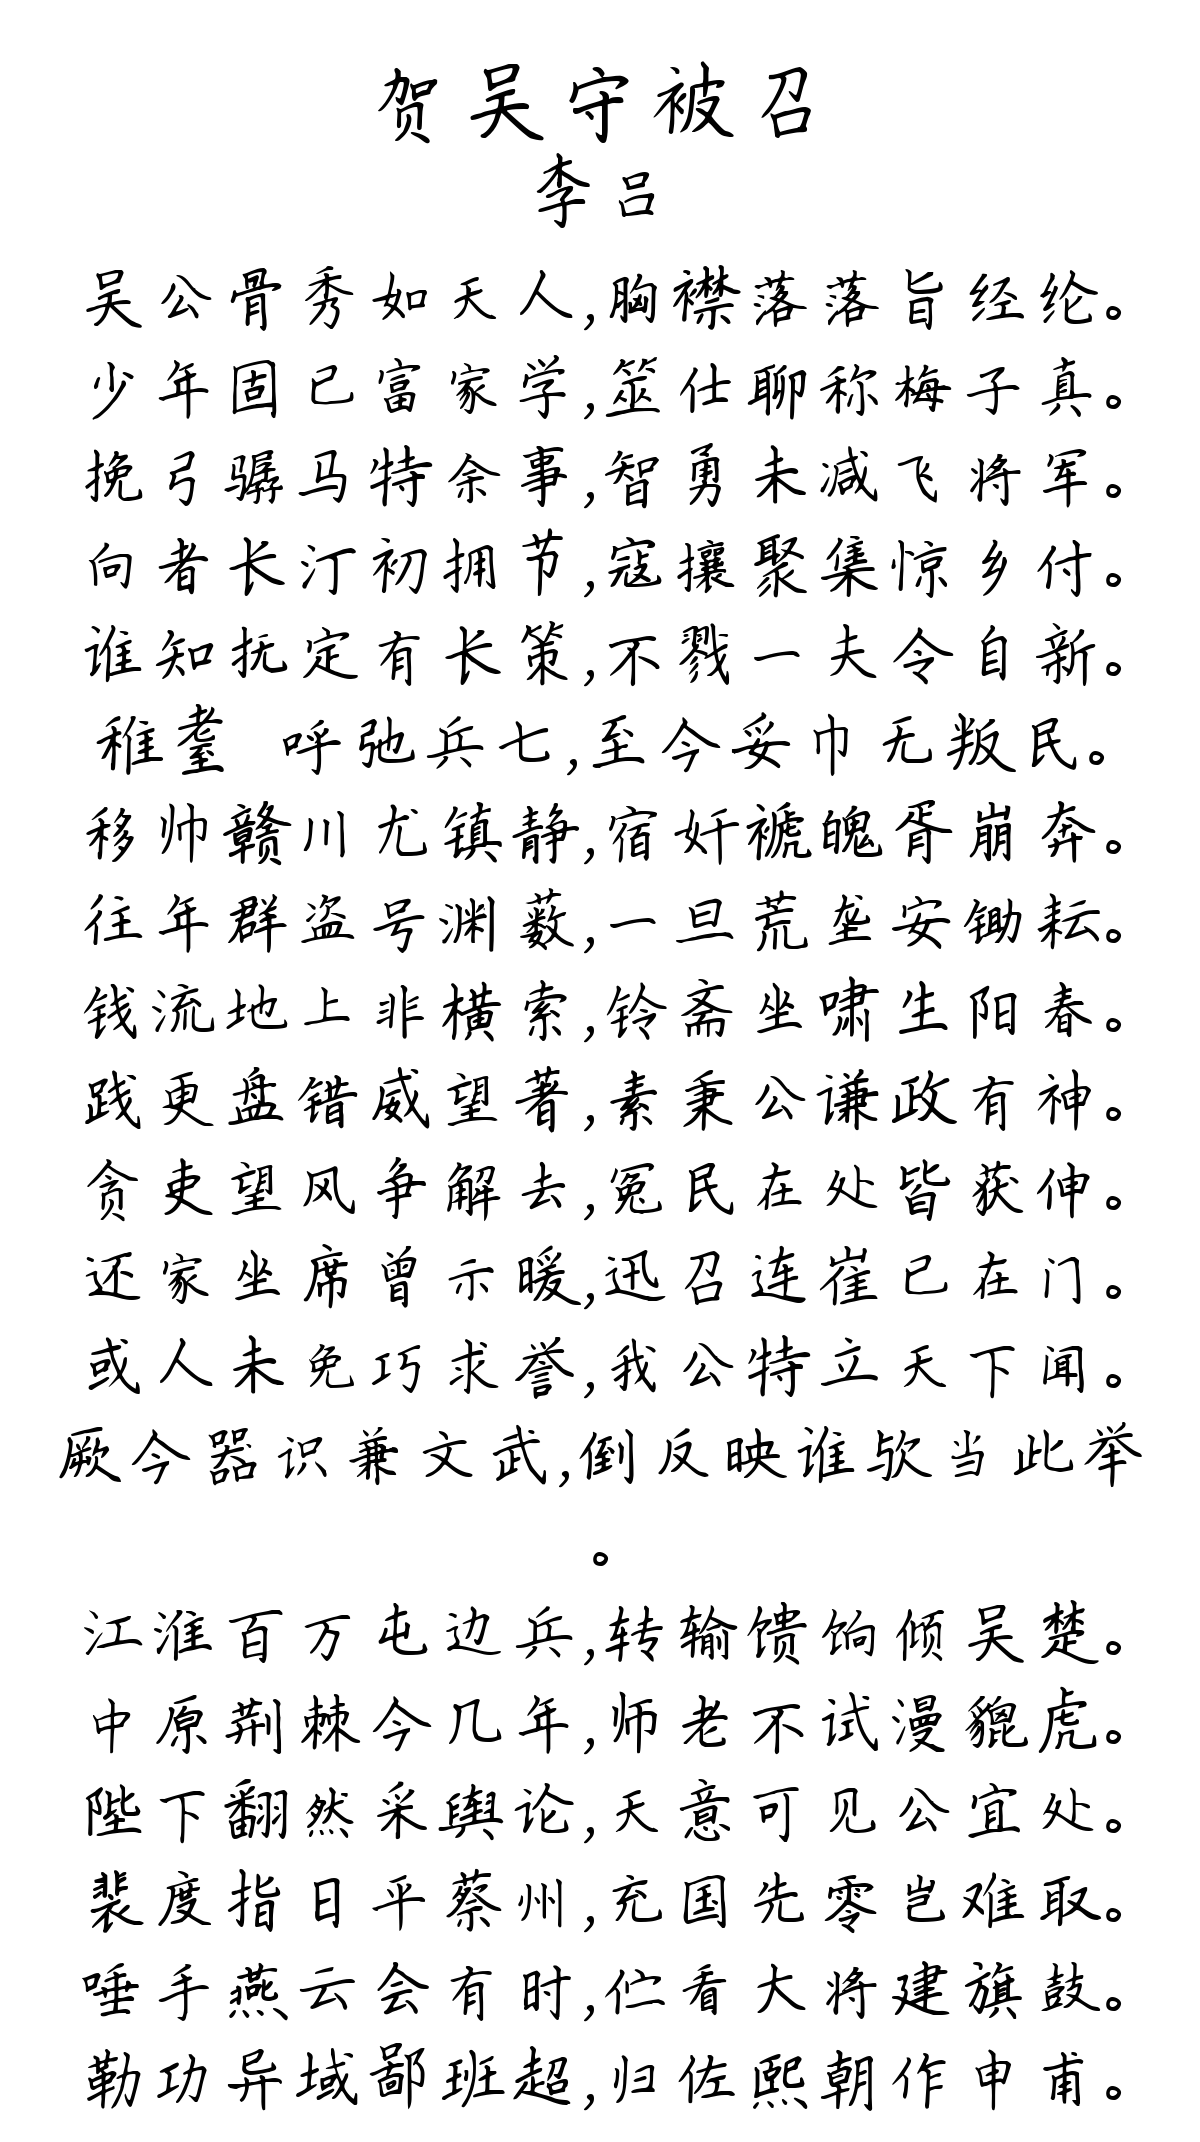 贺吴守被召
李吕
吴公骨秀如天人,胸襟落落旨经纶。
少年固已富家学,筮仕聊称梅子真。
挽弓骣马特余事,智勇未减飞将军。
向者长汀初拥节,寇攘聚集惊乡付。
谁知抚定有长策,不戮一夫令自新。
稚耋 呼弛兵七,至今妥巾无叛民。
移帅赣川尤镇静,宿奸褫魄胥崩奔。
往年群盗号渊薮,一旦荒垄安锄耘。
钱流地上非横索,铃斋坐啸生阳春。
践更盘错威望著,素秉公谦政有神。
贪吏望风争解去,冤民在处皆获伸。
还家坐席曾示暖,迅召连崔已在门。
或人未免巧求誉,我公特立天下闻。
厥今器识兼文武,倒反映谁欤当此举
。
江淮百万屯边兵,转输馈饷倾吴楚。
中原荆棘今几年,师老不试漫貔虎。
陛下翻然采舆论,天意可见公宜处。
裴度指日平蔡州,充国先零岂难取。
唾手燕云会有时,伫看大将建旗鼓。
勒功异域鄙班超,归佐熙朝作申甫。